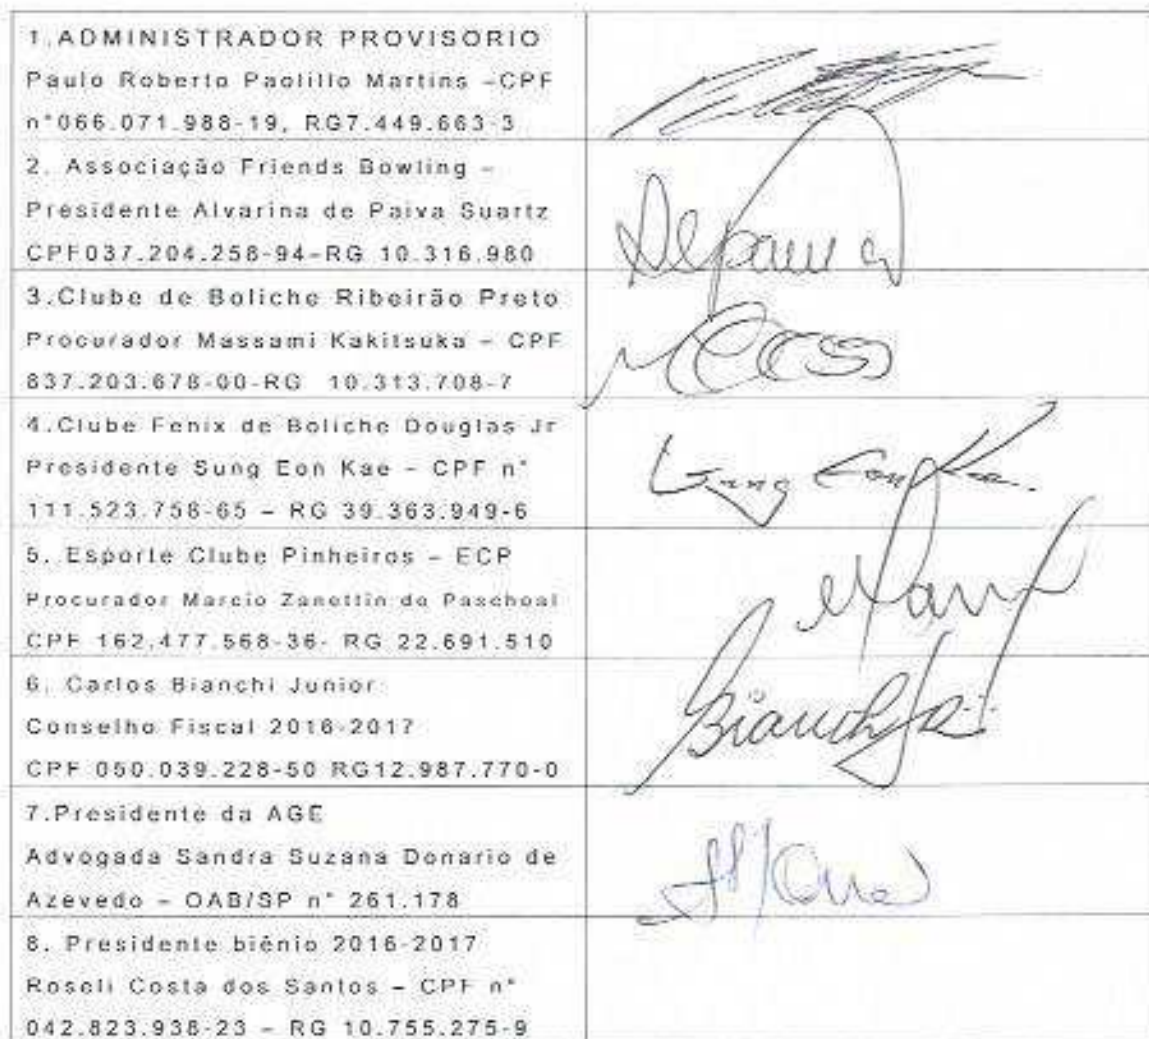 1.ADMINISTRADOR PROVISÓRIO
Paulo Roberto Paolillo Martins –CPF
n°066.071.988-19, RG7.449.663-3
2. Associação Friends Bowling –
Presidente Alvarina de Paiva Suartz
CPF037.204.258-94–RG 10.316.980
3.Clube de Boliche Ribeirão Preto
Procurador Massami Kakitsuka – CPF
837.203.678-00-RG 10.313.708-7
4.Clube Fenix de Boliche Douglas Jr
Presidente Sung Eon Kae – CPF n°
111.523.758-65 – RG 39.363.949-6
Sung Eon Kae
5. Esporte Clube Pinheiros – ECP
Procurador Marcio Zanettin de Paschoal
CPF 162.477.568-36- RG 22.691.510
6. Carlos Bianchi Junior
Conselho Fiscal 2016-2017
CPF 050.039.228-50 RG12.987.770-0
Bianchi Jr
7.Presidente da AGE
Advogada Sandra Suzana Donario de
Azevedo – OAB/SP n° 261.178
8. Presidente biênio 2016-2017
Roseli Costa dos Santos – CPF n°
042.823.938-23 – RG 10.755.275-9